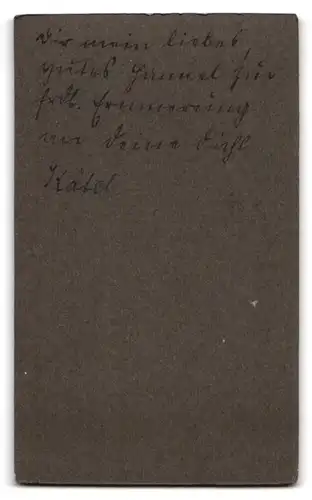 Dir mein liebes,
gutes Hannel zur
frdl. Erinnerung
an Deine
Kätel